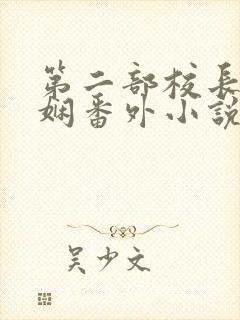 第二部校長
娴番外小說
吴少文